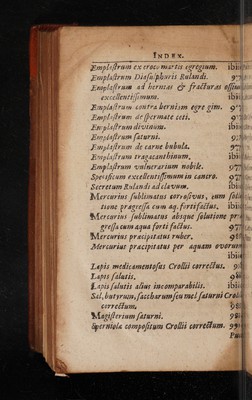 INDEX.
Emplastrum ex croco martis egregium. ibid
Emplastrum Diasulphuris Rulandi. 97
Emplastrum ad hernias & fracturas ossium
excellentissimum. ibid
Emplastrum contra herniam egregium. 97
Emplastrum de spermate ceti. 97
Emplastrum divinum. ibid
Emplastrum saturni. 97
Emplastrum de carne bubula. 97
Emplastrum tragacanthinum. ibid
Emplastrum vulnerarium nobile. 97
Specificum excellentissimum in cancro. 97
Secretum Rulandi ad clavum. ibid
Mercurius sublimatus corrosivus, cum solu-
tione prægressa cum aq. forti factus. ibid
Mercurius sublimatus absque solutione præ-
gressa cum aqua forti factus. 97
Mercurius præcipitatus ruber. 98
Mercurius præcipitatus per aquam ovorum
ibid
Lapis medicamentosus Crollii correctus. 98
Lapis salutis. 98
Lapis salutis alius incomparabilis. ibid
Sal, butyrum, saccharum seu mel saturni Crollii
correctum. 98
Magisterium saturni. 98
Sperniola compositum Crollii correctum. 99